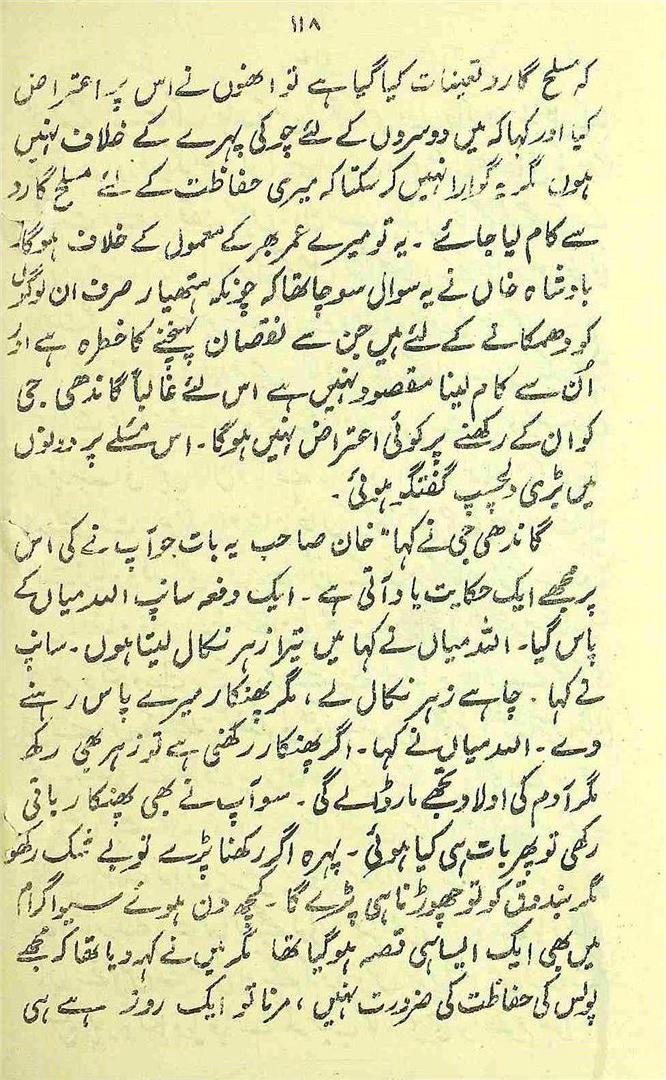 ۱۱۸
کہ مسلح گارد تعینات کیا گیا ہے تو انھوں نے اس پر اعتراض
کیا اور کہا کہ میں دوسروں کے لئے چوکی پہرے کے خلاف نہیں
ہوں مگر یہ گوارا نہیں کر سکتا کہ میری حفاظت کے لئے مسلح گارد
سے کام لیا جائے ۔ یہ تو میرے عمر بھر کے معمول کے خلاف ہوگا۔
بادشاہ خاں نے یہ سوال سوچا تھا کہ چونکہ ہتھیار صرف ان لوگوں
کو دھمکانے کے لئے ہیں جن سے نقصان پہنچنے کا خطرہ ہے اور
اُن سے کام لینا مقصود نہیں ہے اس لئے غالباً گاندھی جی
کو ان کے رکھنے پر کوئی اعتراض نہیں ہوگا۔ اس مسئلے پر دونوں
میں بڑی دلچسپ گفتگو ہوئی ۔
گاندھی جی نے کہا "خان صاحب یہ بات جو آپ نے کی اس
پر مجھے ایک حکایت یاد آتی ہے ۔ ایک دفعہ سانپ اللہ میاں کے
پاس گیا۔ اللہ میاں نے کہا میں تیرا زہر نکال لیتا ہوں ۔ سانپ
نے کہا ۔ چاہے زہر نکال لے ، مگر پھنکار میرے پاس رہنے
دے ۔ اللہ میاں نے کہا ۔ اگر پھنکار رکھنی ہے تو زہر بھی رکھ
مگر آدم کی اولاد تجھے مار ڈالے گی ۔ سو آپ نے بھی پھنکار باقی
رکھی تو پھر بات ہی کیا ہوئی ۔ پہرہ اگر رکھنا پڑے تو بے شک رکھو
مگر بندوق کو تو چھوڑنا ہی پڑے گا ۔ کچھ دن ہوئے سیواگرام
میں بھی ایک ایسا ہی قصہ ہو گیا تھا مگر میں نے کہہ دیا تھا کہ مجھے
پولس کی حفاظت کی ضرورت نہیں ، مرنا تو ایک روز ہے ہی